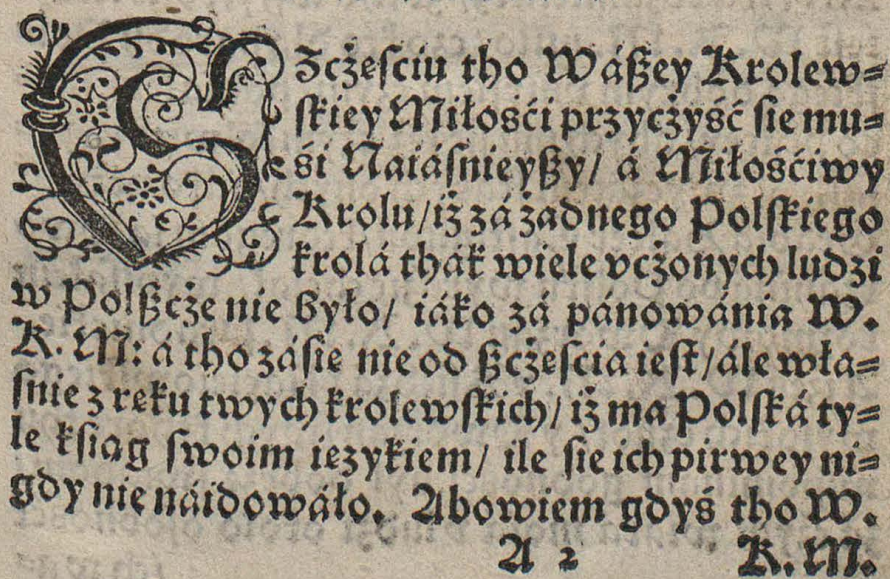 SZcżesciu tho Wáßey Krolew⸗
skiey Miłosći przycżyść sie mu⸗
śi Naiásnieyßy/ á Miłośćiwy
Krolu/iż zá żadnego Polskiego
krolá thák wiele vcżonych ludzi
w Polßcże nie było/ iáko zá pánowánia W.
K. M: á tho zásie nie od ßcżescia iest/ále wła⸗
snie z reku twych krolewskich/ iż ma Polská ty⸗
le ksiąg swoim iezykiem/ ile sie ich pirwey ni⸗
gdy nie náidowáło. Abowiem gdyś tho W.
A 2 K. M.